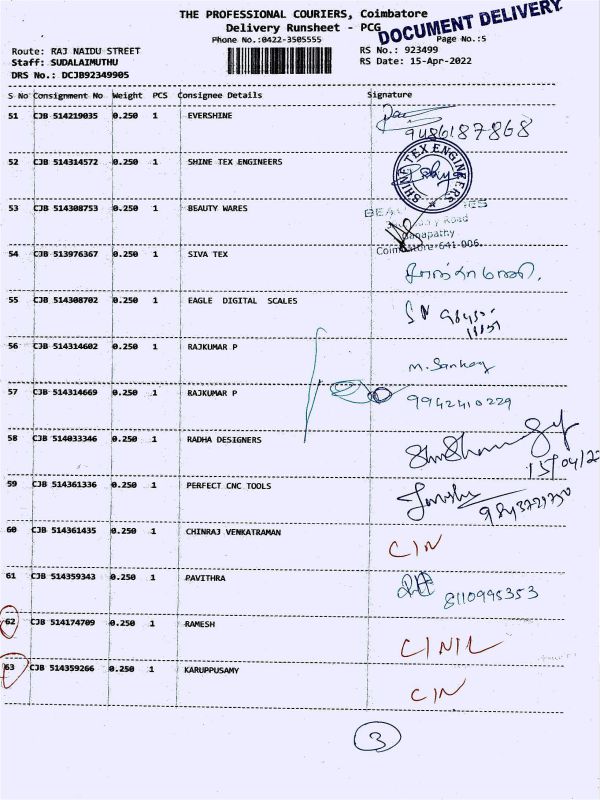 THE PROFESSIONAL COURIERS, Coimbatore
Delivery Runsheet - PCG
DOCUMENT DELIVERY
Phone No.:0422-3505555
Page No.:5
Route: RAJ NAIDU STREET
RS No.: 923499
Staff: SUDALAIMUTHU
RS Date: 15-Apr-2022
DRS No.: DCJB92349905
S No Consignment No Weight PCS Consignee Details Signature
51 CJB 514219035 0.250 1 EVERSHINE
9486187868
52 CJB 514314572 0.250 1 SHINE TEX ENGINEERS
SHINE TEX ENGINEERS
53 CJB 514308753 0.250 1 BEAUTY WARES
Road
Ganapathy
Coimbatore-641-006.
54 CJB 513976367 0.250 1 SIVA TEX
55 CJB 514308702 0.250 1 EAGLE DIGITAL SCALES
56 CJB 514314602 0.250 1 RAJKUMAR P
57 CJB 514314669 0.250 1 RAJKUMAR P
9942410229
58 CJB 514033346 0.250 1 RADHA DESIGNERS
15/04/22
59 CJB 514361336 0.250 1 PERFECT CNC TOOLS
60 CJB 514361435 0.250 1 CHINRAJ VENKATRAMAN
C/N
61 CJB 514359343 0.250 1 PAVITHRA
8110995353
62 CJB 514174709 0.250 1 RAMESH
63 CJB 514359266 0.250 1 KARUPPUSAMY
C/N
3